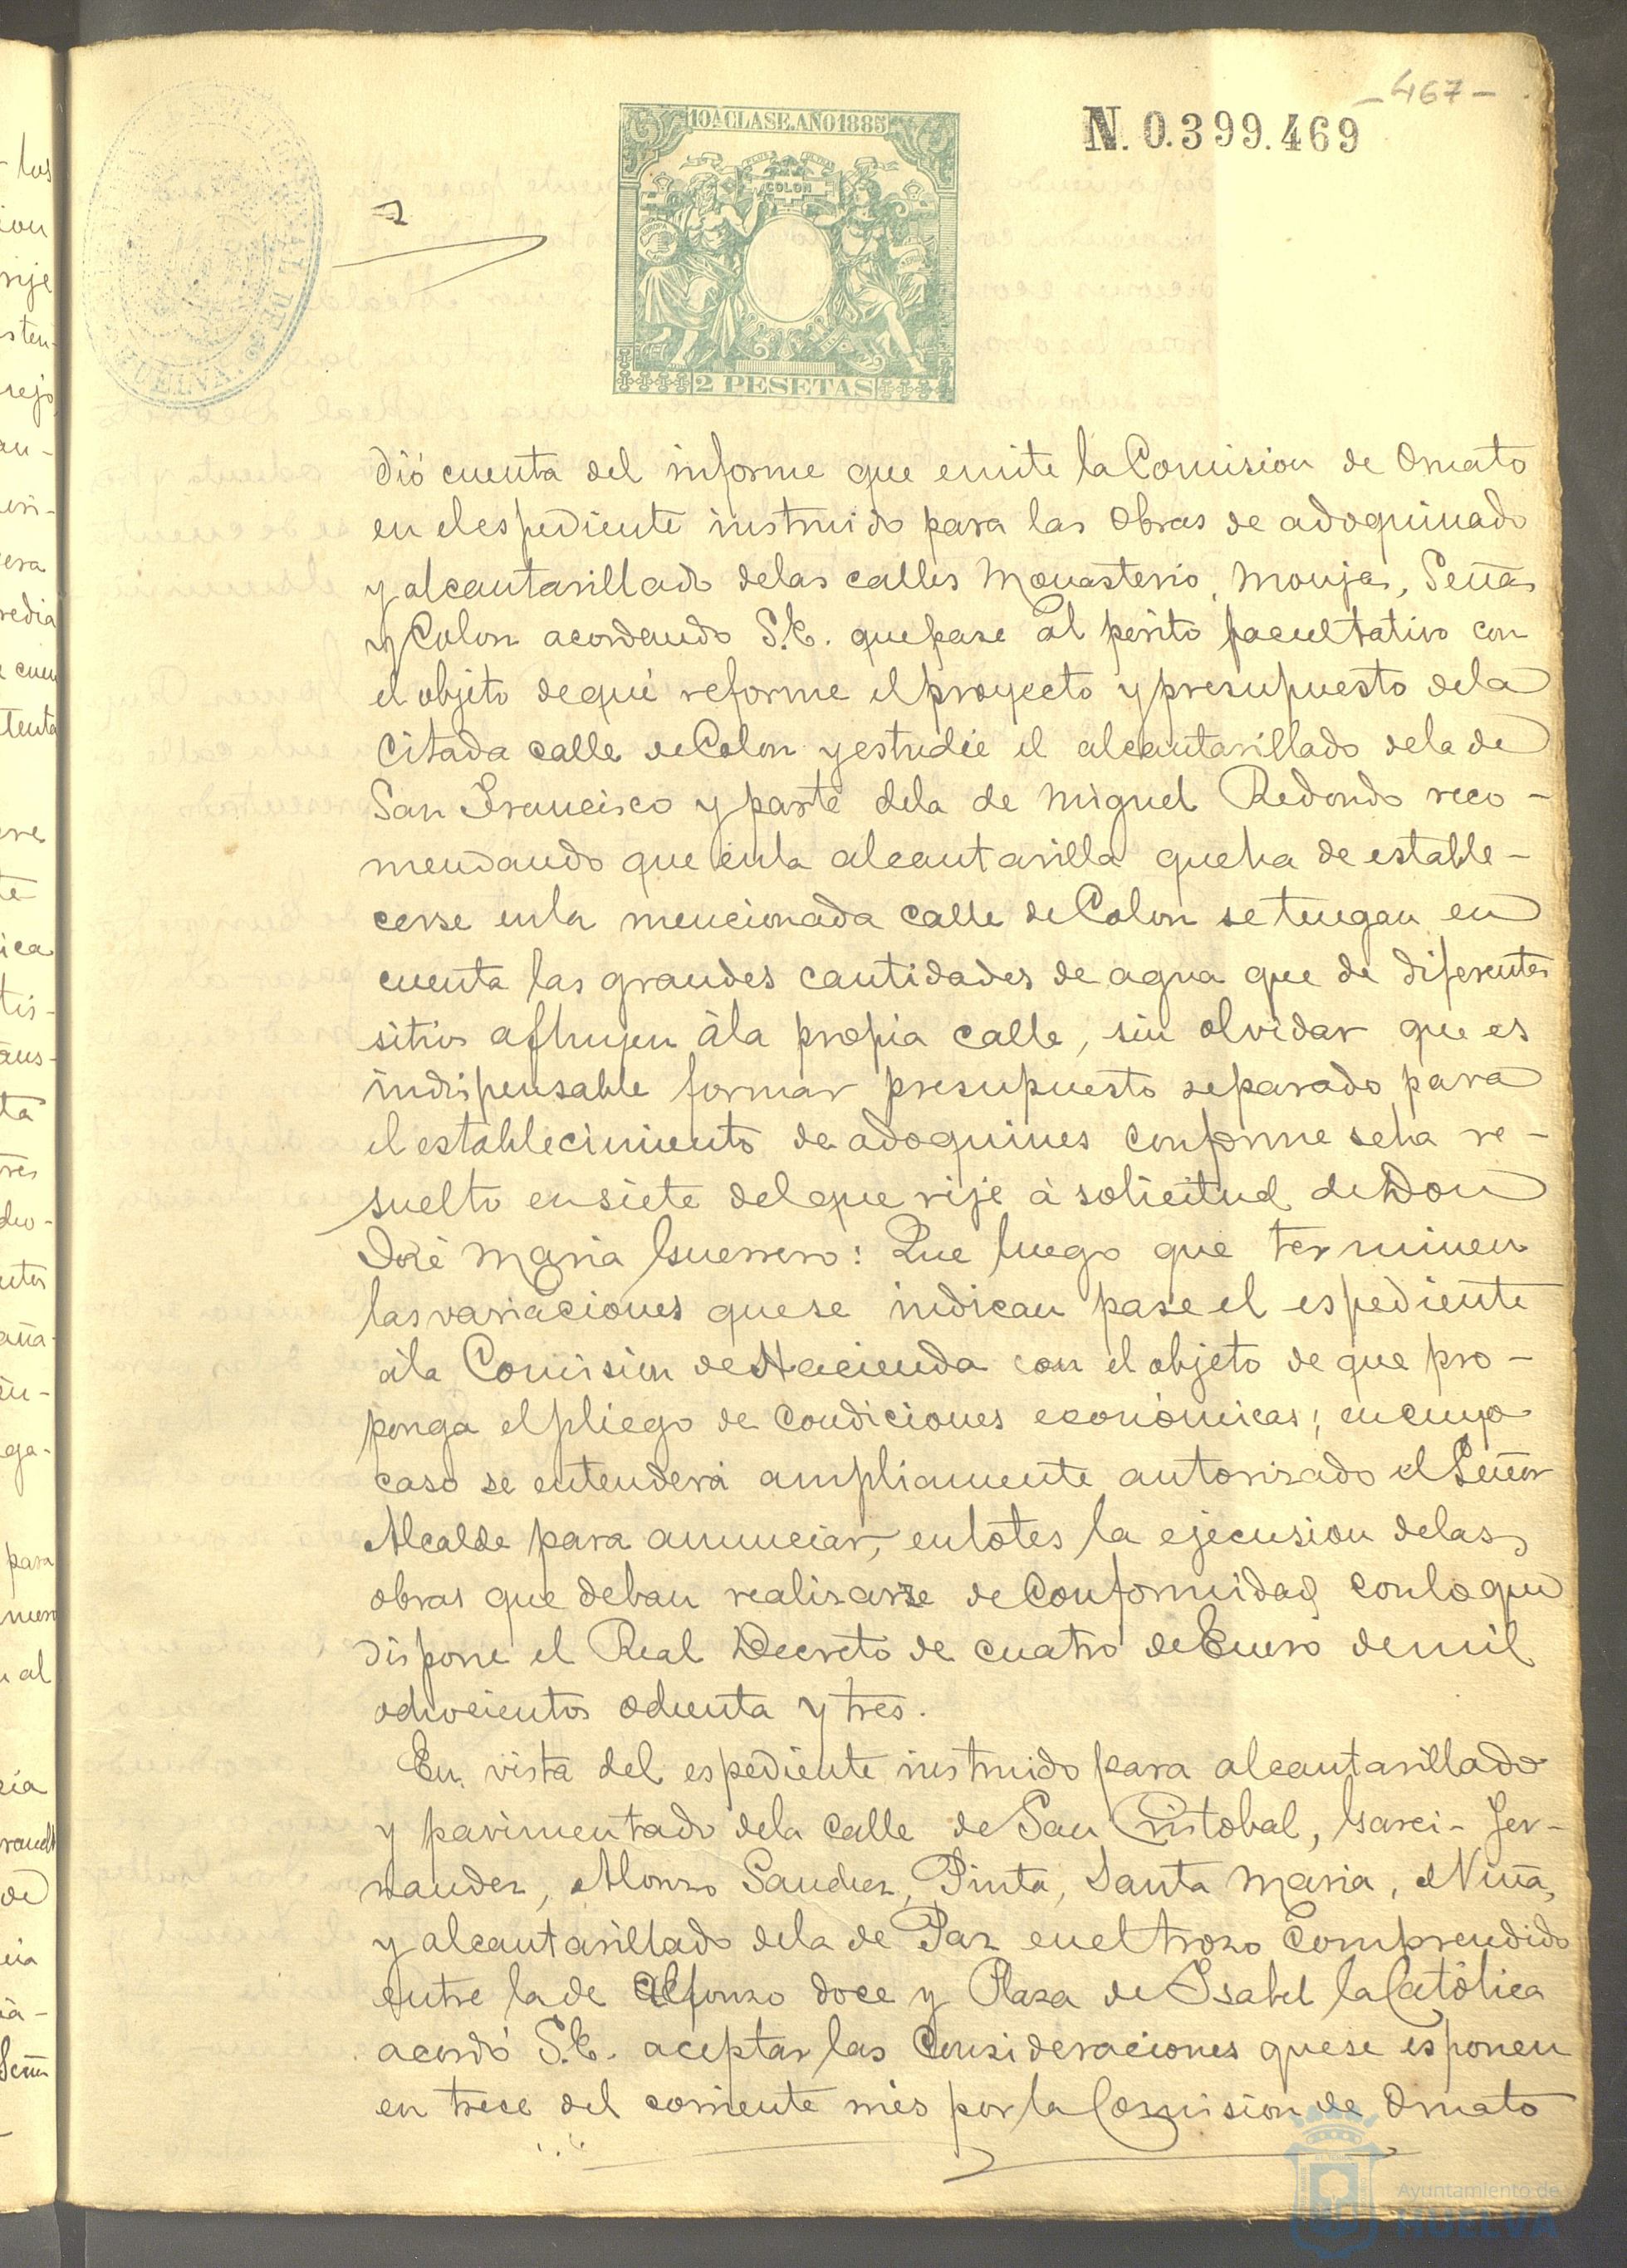 -467-
10ª CLASE. AÑO 1885
N. 0.399.469
COLON
2 PESETAS
HUELVA
dió cuenta del informe que emite la Comision de Ornato
en el espediente instruido para las obras de adoquinado
y alcantarillado delas calles Monasterio, Monjas, Señas
y Colon acordando S.E. que pase al perito facultativo con
el objeto de que reforme el proyecto y presupuesto dela
citada calle de Colon y estudie el alcantarillado dela de
San Francisco y parte dela de Miguel Redondo reco-
mendando que enla alcantarilla que ha de estable-
cerse enla mencionada calle de Colon se tengan en
cuenta las grandes cantidades de agua que de diferentes
sitios afluyen àla propia calle, sin olvidar que es
indispensable formar presupuesto separado para
el establecimiento de adoquines conforme seha re-
suelto en siete del que rije à solicitud de Don
José Maria Guerrero: Que luego que terminen
las variaciones que se indican pase el espediente
àla Comision de Hacienda con el objeto de que pro-
ponga el pliego de condiciones económicas; en cuyo
caso se entenderá ampliamente autorizado el Señor
Alcalde para anunciar, en lotes la ejecusion delas
obras que deban realizarse de conformidad conlo que
dispone el Real Decreto de cuatro de Enero de mil
ochocientos ochenta y tres.
En vista del espediente instruido para alcantarillado
y pavimentado dela calle de San Cristobal, Garci-Fer-
nandez, Alonzo Sanchez, Pinta, Santa Maria, Niña,
y alcantarillado dela de Paz enel trozo comprendido
entre la de Alfonzo doce y Plaza de Isabel la Católica
acordó S.E. aceptar las consideraciones que se esponen
en trece del corriente mes por la Comision de Ornato
Ayuntamiento de
HUELVA